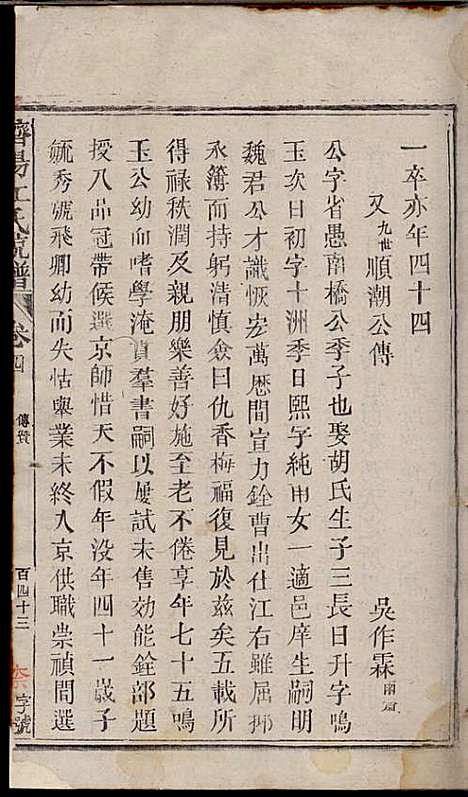 一卒亦年四十四
又九世順潮公傳
吳作霖雨蒼
公字省愚南橋公季子也娶胡氏生子三長日升字鳴
玉次日初字十洲季日熙字純甫女一適邑庠生嗣明
魏君公才識恢宏萬厯間宣力銓曹出仕江右雖屈抑
永簿而持躬清慎僉曰仇香梅福復見於茲矣五載所
得祿秩潤及親朋樂善好施至老不倦享年七十五鳴
玉公幼血嗜學淹貫羣書嗣以屢試未售効能銓部題
授八品冠帶候選京師惜天不假年没年四十一歲子
毓秀號飛卿幼而失怙舉業未終入京供職崇禎間選
濟陽江氏宗譜
卷四
傳贊
百四十三
字號